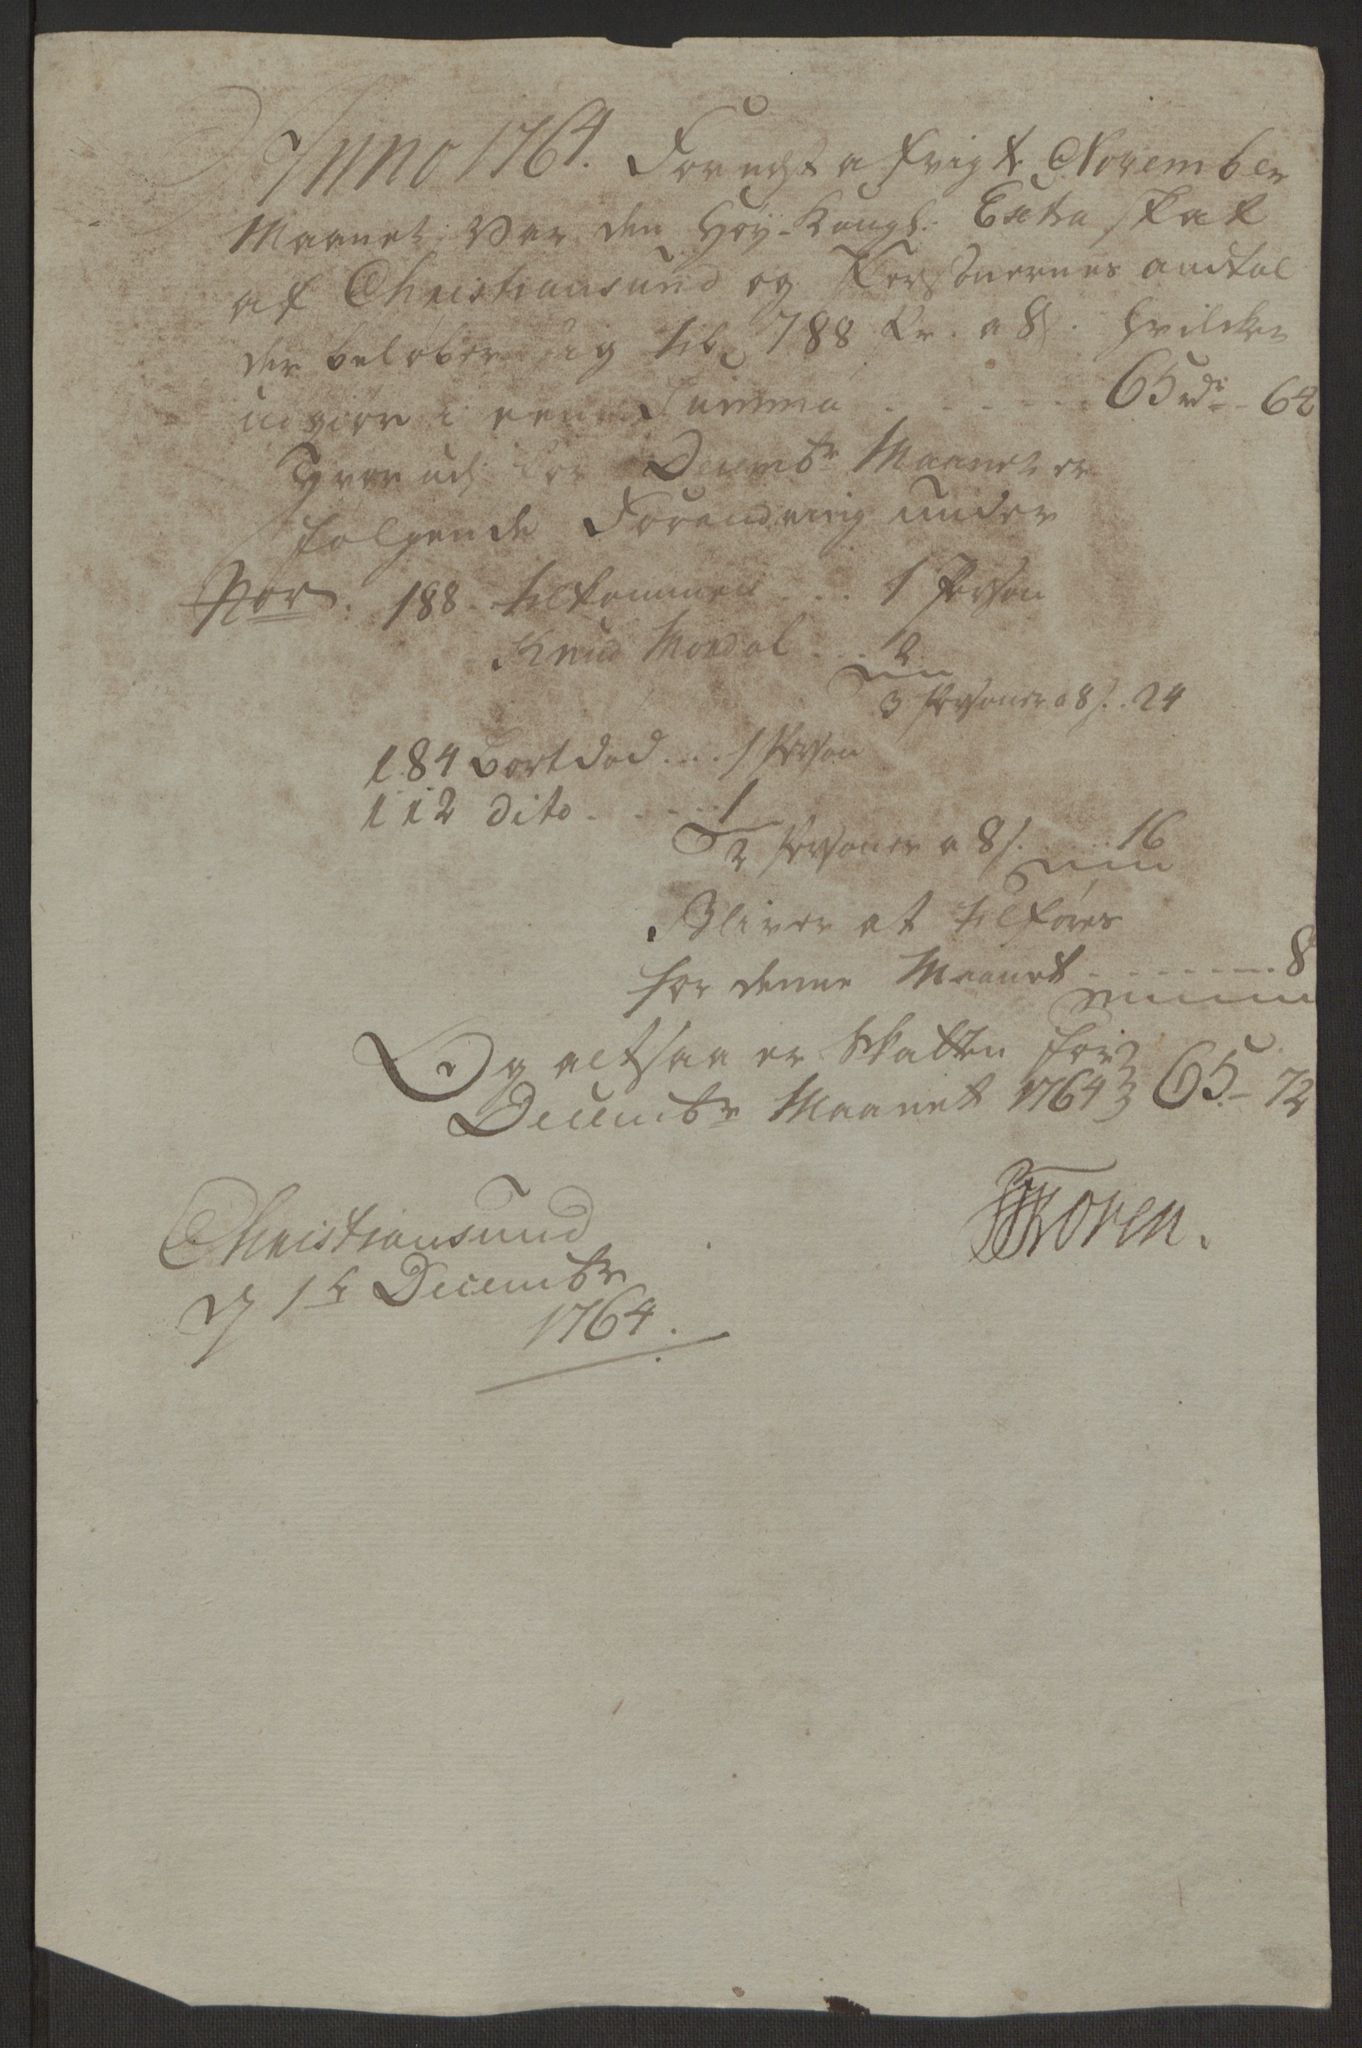 Anno 1764. For nest afvigt November
Maanet var den Høy-Kongl: Extra Skat
af Christiansund og Persohnernes andtal
der beløber sig til 788 Pr. a 8 s. hvilcken
udgiør i een Summa . . . . . 65 rdr - 64
Hvor ud for Decembr Maanet er
følgende Forandring under
No. 188 - tilkommen . . . 1 Person
Knud Mordal . . . 2
3 Personer a 8 s. . 24
184 bortdød . . . 1 Person
112 dito . . . . . 1
2 Personer a 8 s. . . . 16
Bliver at tilføres
for denne Maanet . . . . . . . . 8
Og altsaa er Skatten for
Decembr Maanet 1764 65 - 72
Christiansund
d 1te Decembr
1764.
Koren.